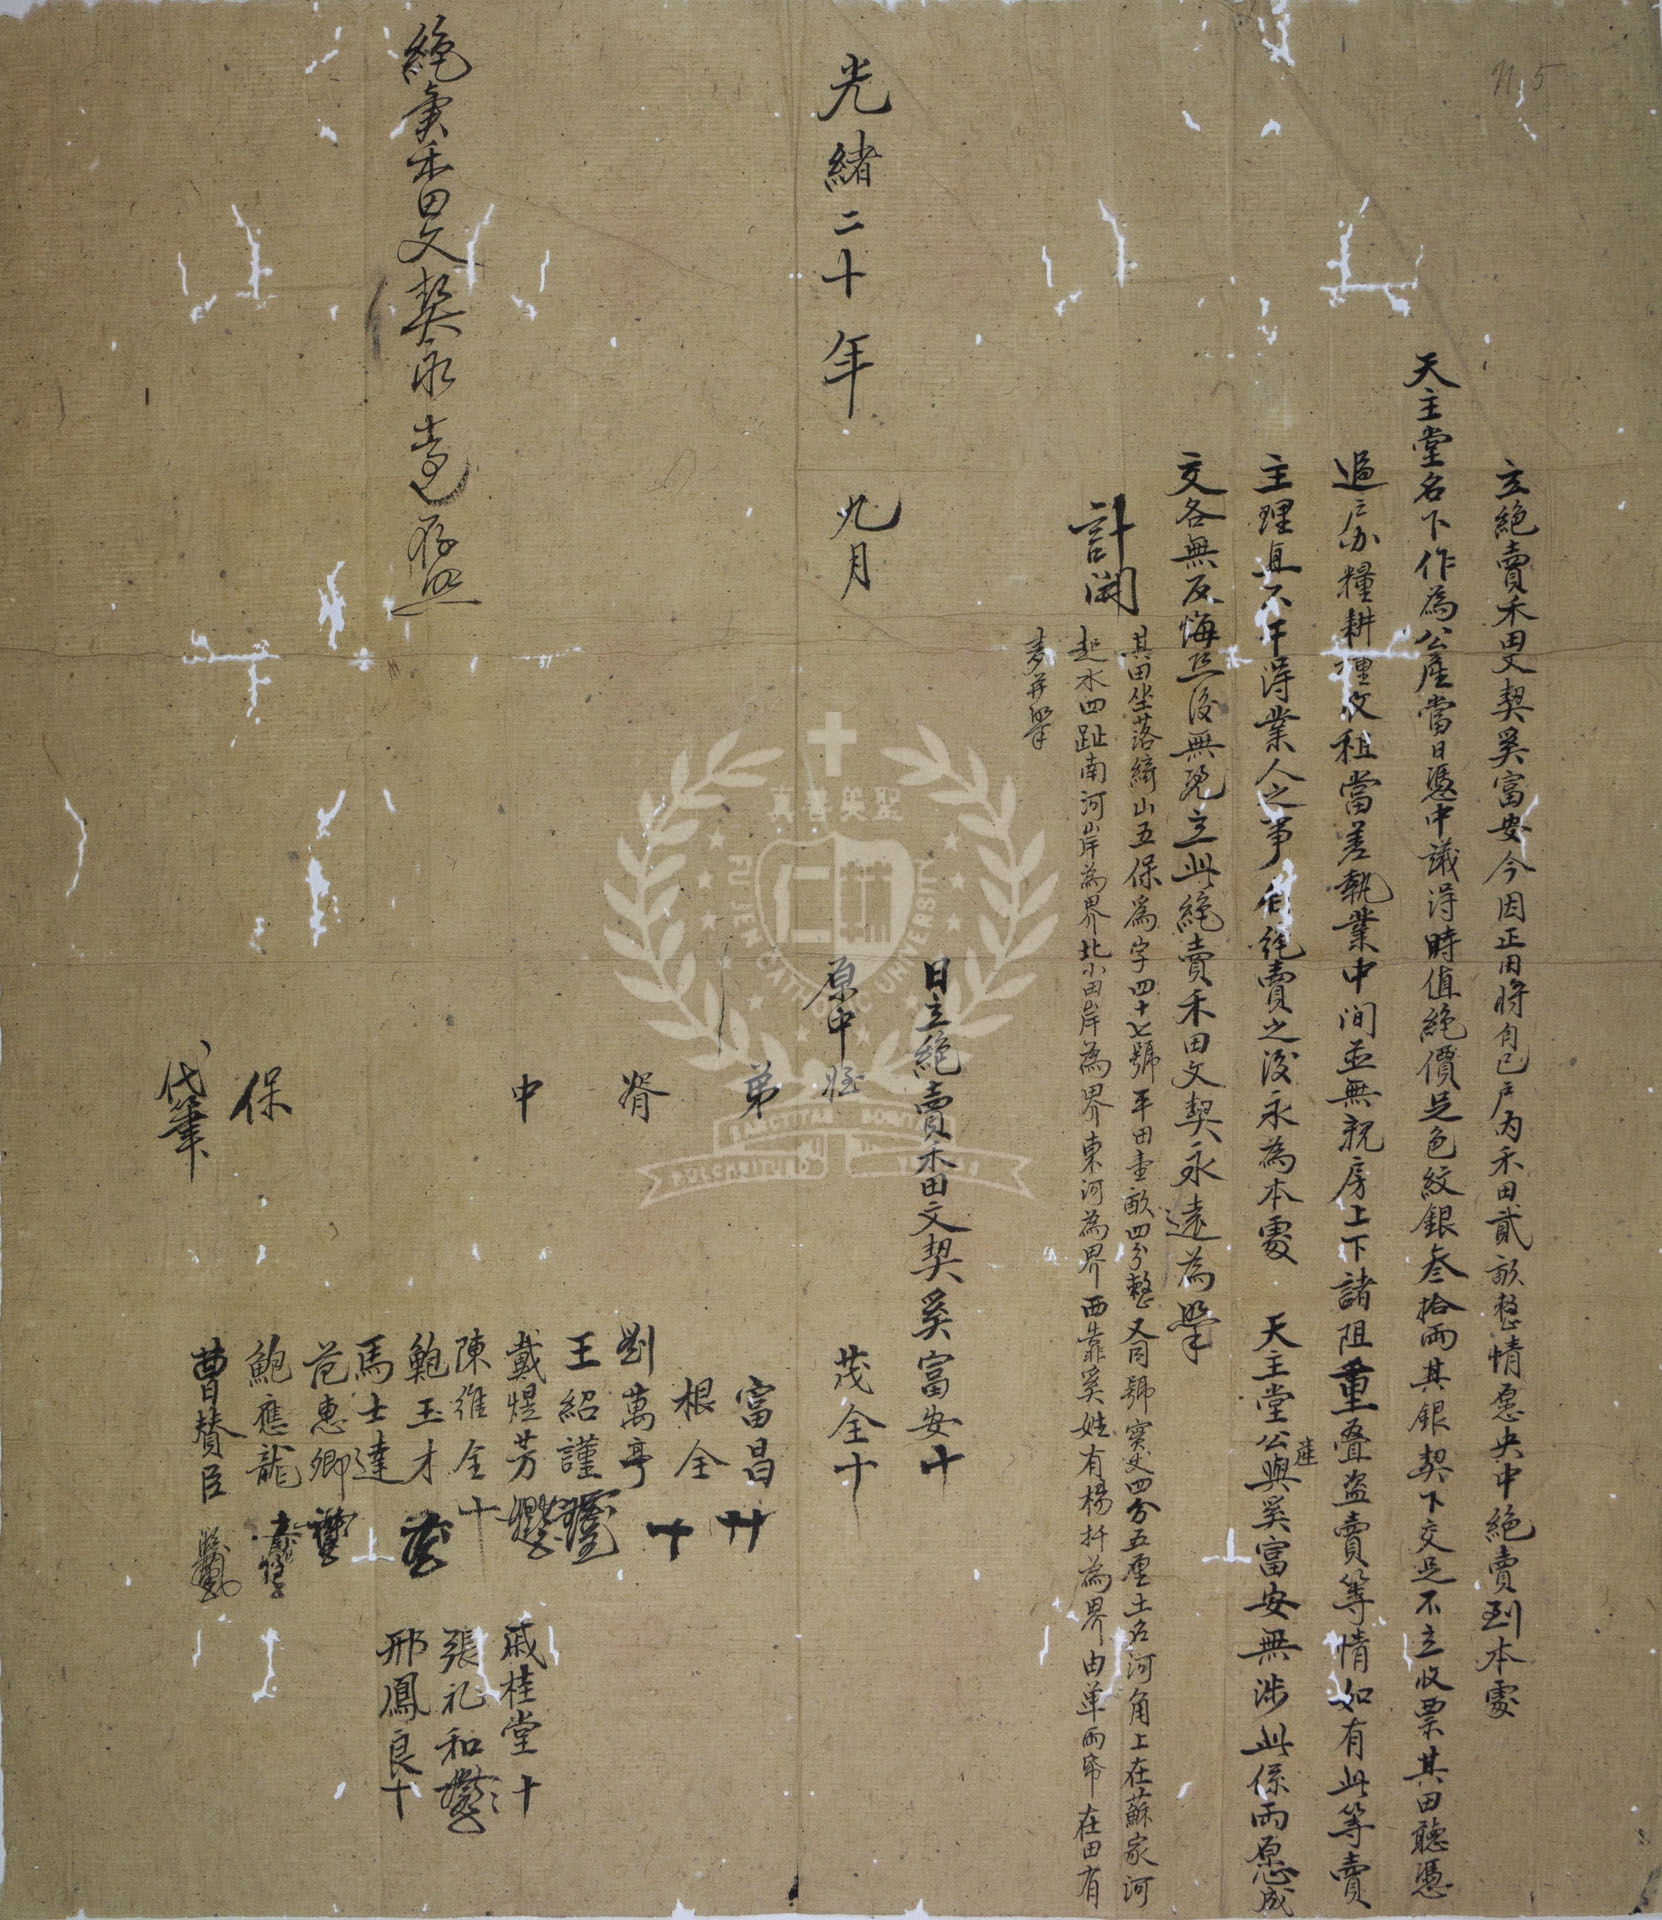 N 5
立絕賣禾田文契奚富安今因正用將自己戶內禾田貳畝整情愿央中絕賣到本處
天主堂名下作為公產當日憑中議得時值絕價足色紋銀叁拾兩其銀契下交足不立收票其田聽憑
過户办糧耕種收租當差執業中间並無親房上下諸阻重叠盜賣等情如有此等賣
主理直不干得業人之事自絕賣之後永為本處 天主堂公產與奚富安無涉此係兩愿成
交各無反悔恐後無憑立此絕賣禾田文契永遠為㨿
計開
其田坐落綺山五保為字四十七號平田壹畝四分整又同號 四分五厘土名河角上在蘇家河
起水四趾南河岸為界北小田岸為界東河為界西靠奚姓有楊扦為界由单兩希在田有
麥并㨿
光緒二十年 九月 日立絕賣禾田文契奚富安十
原中 姪 茂全十
弟 富昌
根全十
婿 劉萬亭
王紹謹
中 戴煜芳 戚桂堂十
陳維全十 張礼和
鮑玉才 邢鳳良十
馬士達
范惠卿
保 鮑應龍
代筆 曹賛臣
絕賣禾田文契永遠存照
聖美善真
FU JEN CATHOLIC UNIVERSITY
SANCTITAS BONITAS
PULCHRITUDO VERITAS